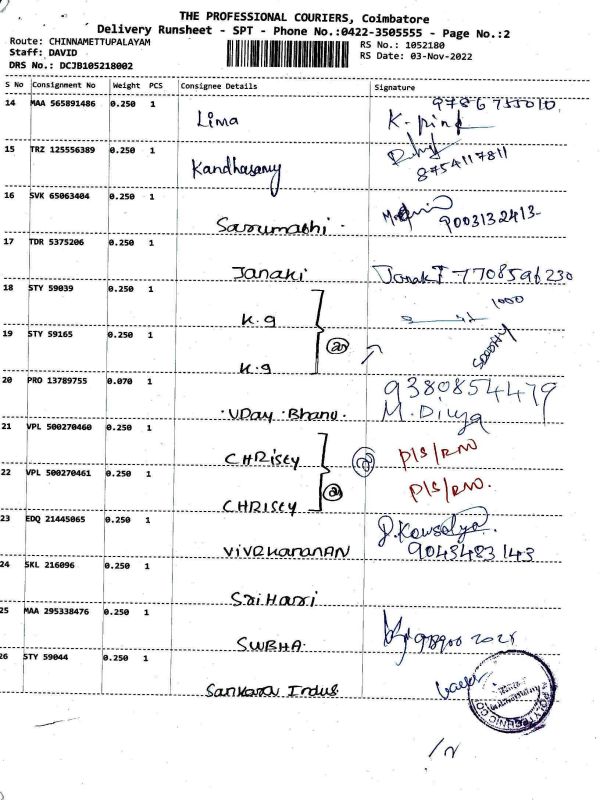 THE PROFESSIONAL COURIERS, Coimbatore
Delivery Runsheet - SPT - Phone No.:0422-3505555 - Page No.:2
Route: CHINNAMETTUPALAYAM
Staff: DAVID
DRS No.: DCJB105218002
RS No.: 1052180
RS Date: 03-Nov-2022
S No Consignment No Weight PCS Consignee Details Signature
14 MAA 565891486 0.250 1 Lima K.
15 TRZ 125556389 0.250 1 Kandhasamy 8754117811
16 SVK 65063404 0.250 1 9003132413
17 TDR 5375206 0.250 1 Janaki Janaki 7708596230
18 STY 59039 0.250 1 K.g 1000
19 STY 59165 0.250 1 K.g
20 PRO 13789755 0.070 1 UDay Bhanu. 9380854479
M. Divya
21 VPL 500270460 0.250 1 CHRISEY P/S/RNO
22 VPL 500270461 0.250 1 CHRISEY P/S/RNO.
23 EDQ 21445065 0.250 1 P. Kowsalya.
9043483143
24 SKL 216096 0.250 1 SriHari
25 MAA 295338476 0.250 1 SUBHA
26 STY 59044 0.250 1 Sankara Indus
POLYTECHNIC CO